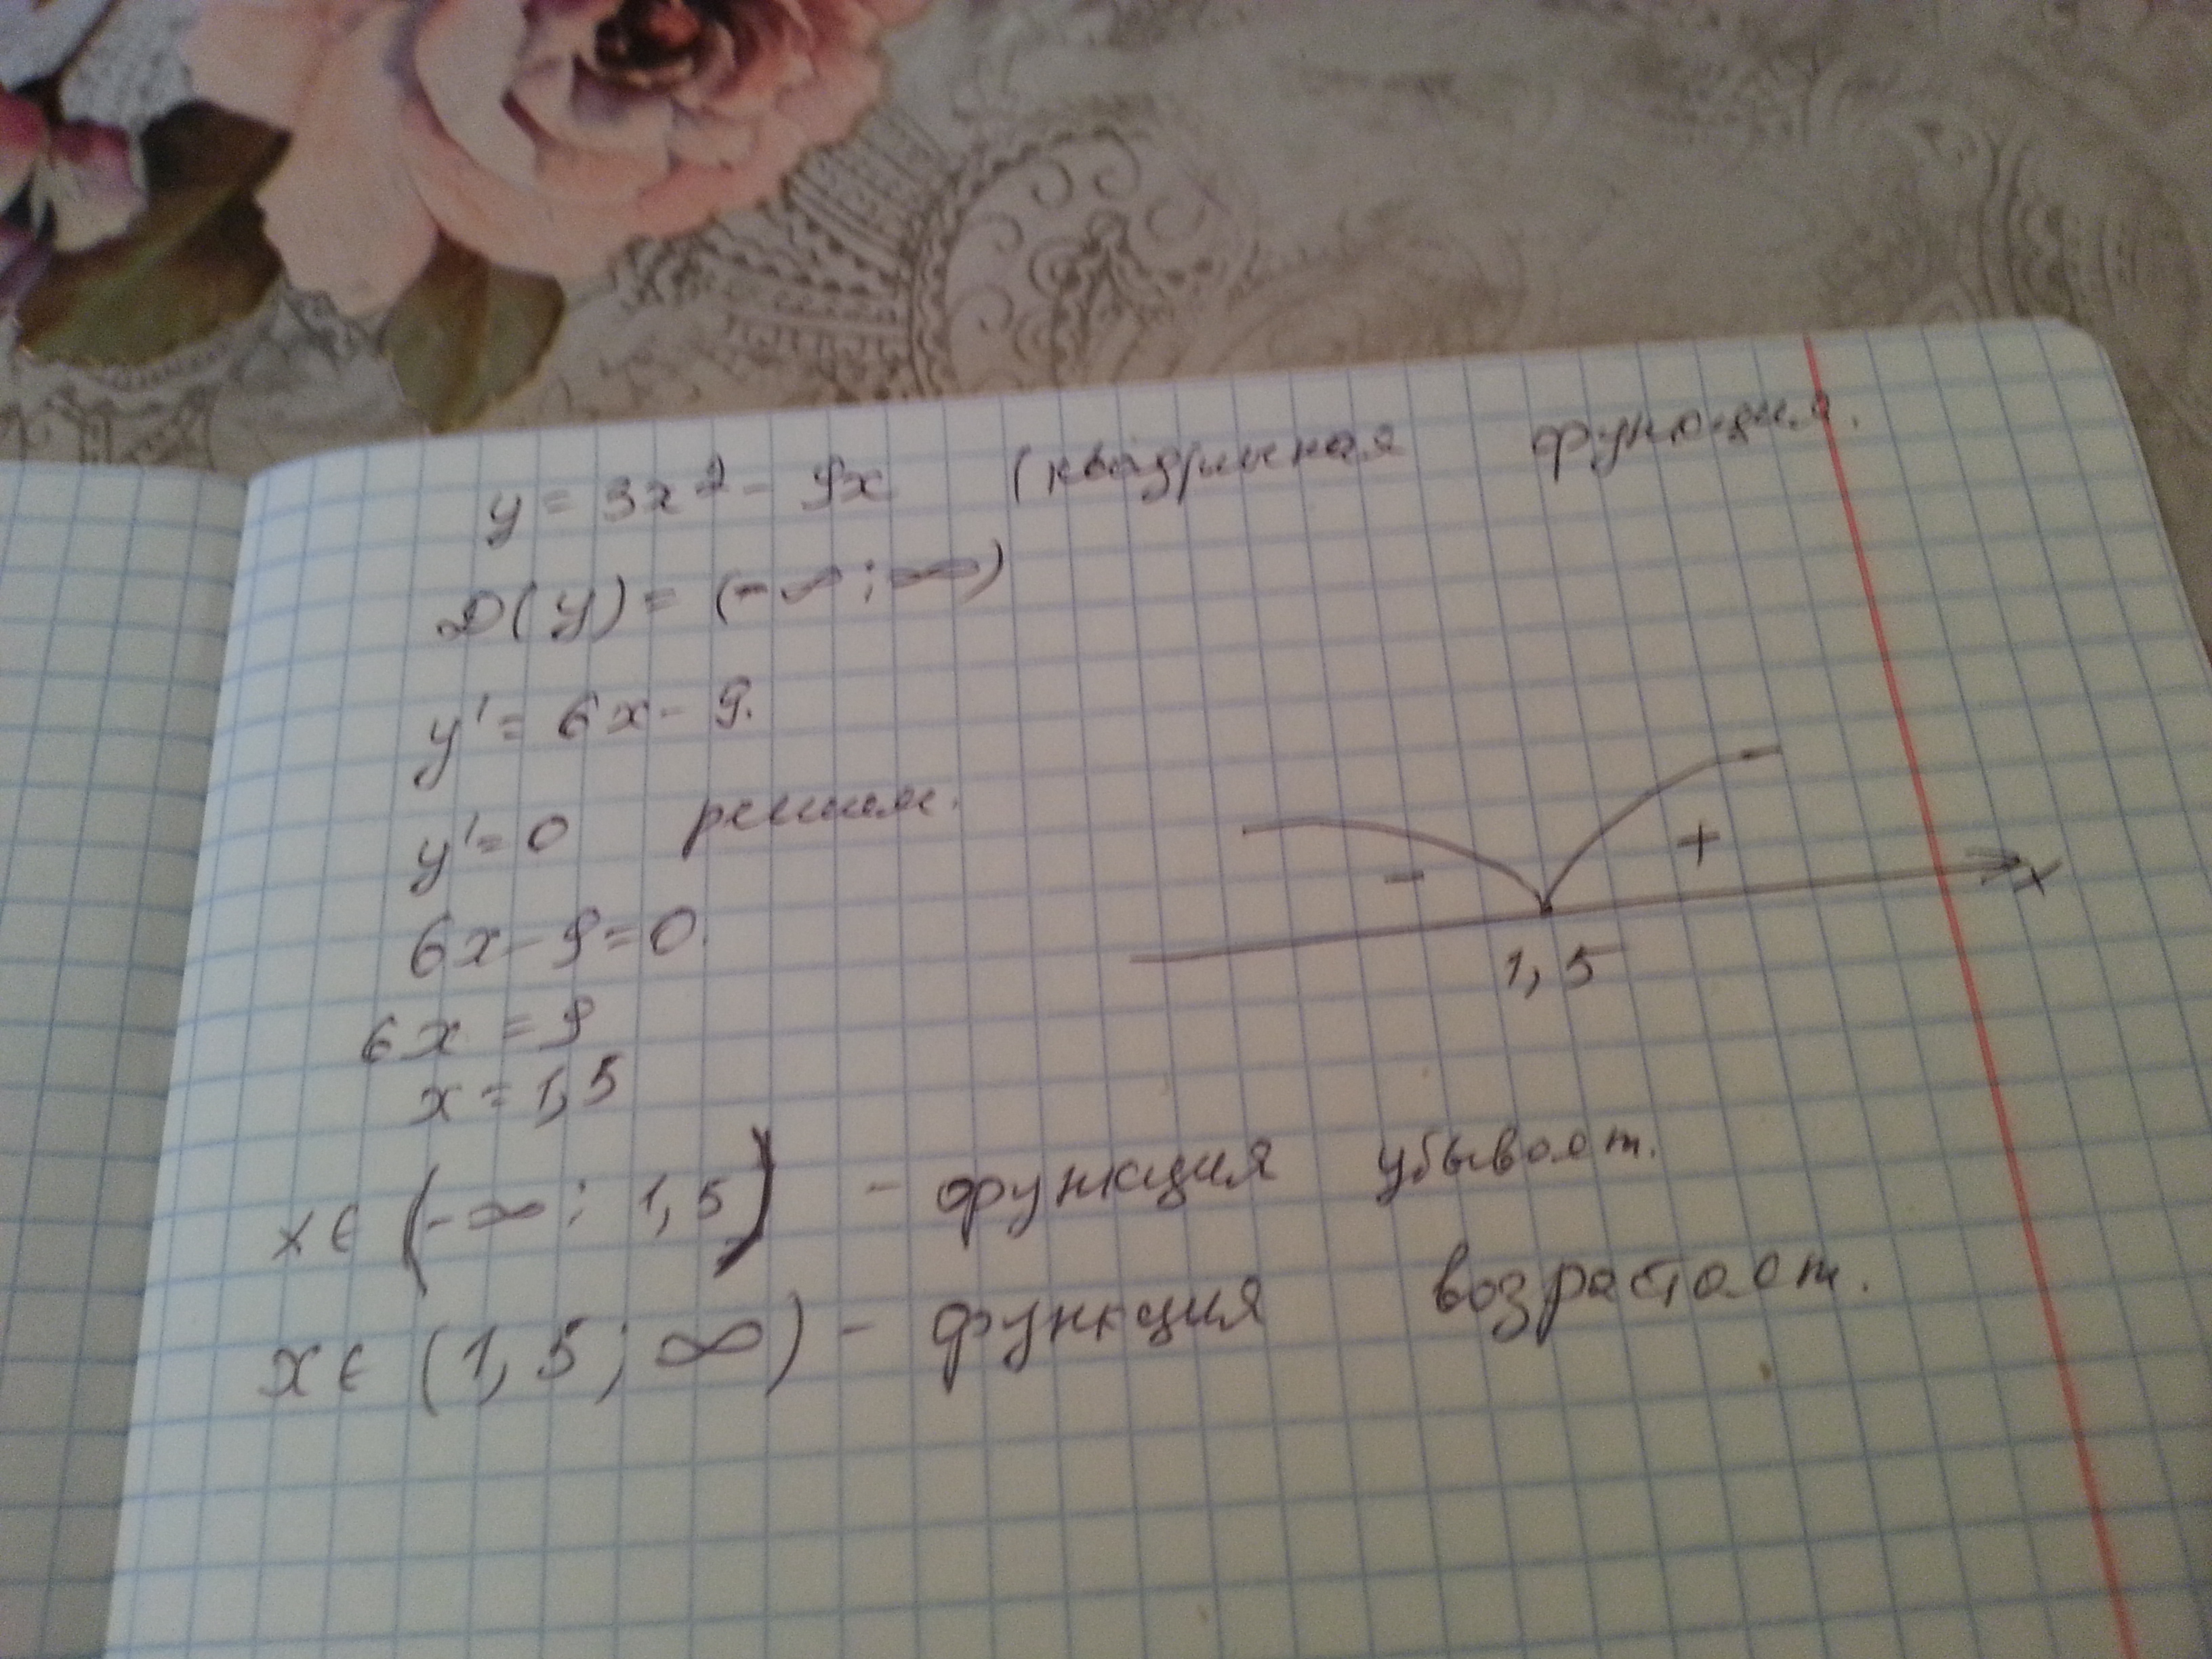 y = 3x² - 9x (квадратная функция.
D(y) = (-∞; ∞)
y' = 6x - 9.
y' = 0 решим.
6x - 9 = 0.
6x = 9
x = 1,5
- + x
1,5
x ∈ (-∞; 1,5) - функция убывает.
x ∈ (1,5; ∞) - функция возрастает.